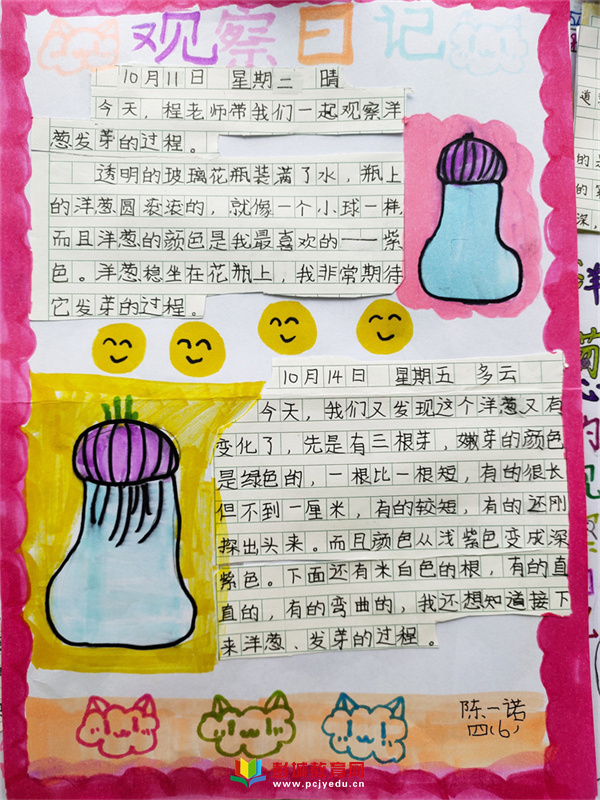 观察日记
10月11日 星期二 晴
今天，程老师带我们一起观察洋
葱发芽的过程。
透明的玻璃花瓶装满了水，瓶上
的洋葱圆滚滚的，就像一个小球一样，
而且洋葱的颜色是我最喜欢的——紫
色。洋葱稳坐在花瓶上，我非常期待
它发芽的过程。
10月14日 星期五 多云
今天，我们又发现这个洋葱又有
变化了，先是有三根芽，嫩芽的颜色
是绿色的，一根比一根短，有的很长
但不到一厘米，有的较短，有的还刚
探出头来。而且颜色从浅紫色变成深
紫色。下面还有米白色的根，有的直
直的，有的弯曲的，我还想知道接下
来洋葱、发芽的过程。
陈一诺
四(6)
彭城教育网
www.pcjyedu.cn